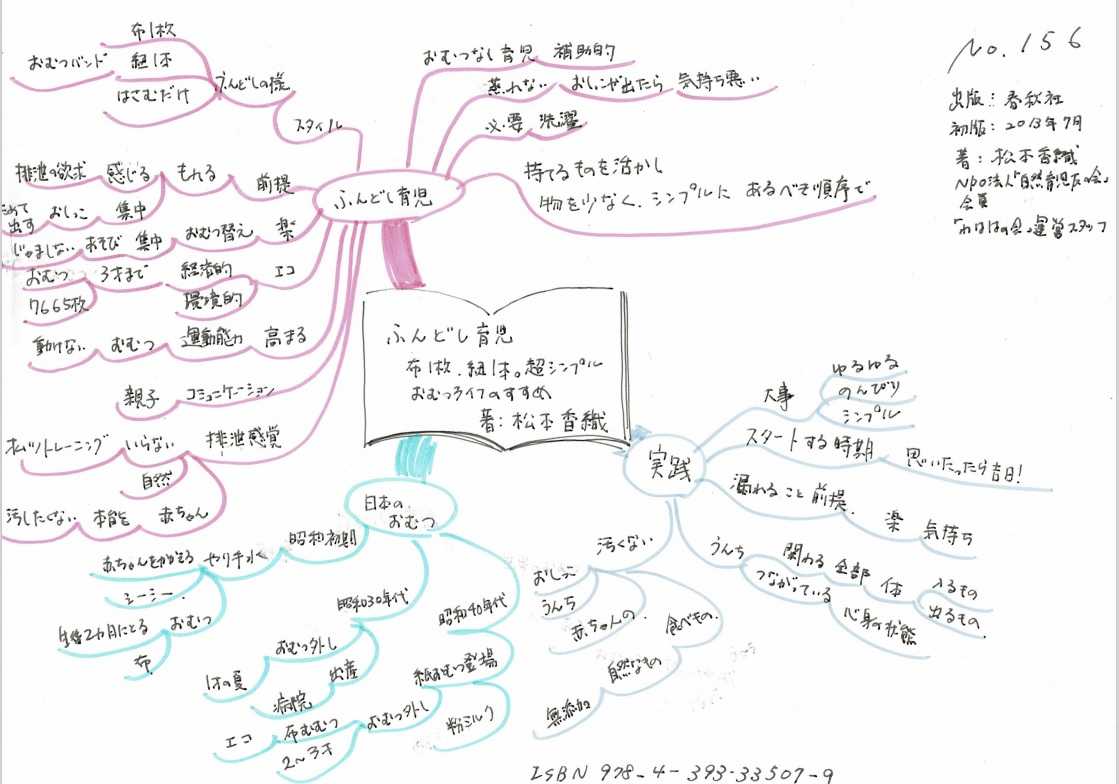 No.156
出版：春秋社
初版：2013年7月
著：松本香織
NPO法人「自然育児友の会」
会員
「わははの会」運営スタッフ
ふんどし育児
布1枚、紐1本。超シンプル
おむつライフのすすめ
著：松本香織
ふんどし育児
おむつなし育児 補助的
蒸れない おしっこが出たら 気持ち悪い
必要 洗濯
持てるものを活かし
物を少なく、シンプルに あるべき順序で
スタイル
ふんどしの様
布1枚
紐1本
はさむだけ
おむつバンド
前提
もれる
感じる
排泄の欲求
集中
おしっこ
ためて
出す
楽
おむつ替え
集中
あそび
じゃましない
エコ
経済的
3才まで
おむつ
7665枚
環境的
高まる
運動能力
おむつ
動けない
コミュニケーション
親子
排泄感覚
いらない
トレーニング
自然
赤ちゃん
本能を
汚したくない
日本の
おむつ
昭和初期
やり手水
赤ちゃんをかかえる
シーシー
おむつ
生後2カ月にとる
布
昭和30年代
おむつ外し
1才の夏
出産
病院
昭和40年代
紙おむつ登場
おむつ外し
布おむつ
エコ
2〜3才
粉ミルク
実践
大事
ゆるゆる
のんびり
シンプル
スタートする時期
思いたったら吉日！
漏れること前提。
楽 気持ち
うんち
関わる 全部 体
入るもの
出るもの。
つながっている
心身の状態
汚くない
おしっこ
うんち
赤ちゃんの。
食べもの。
自然なもの
無添加
ISBN 978-4-393-33507-9